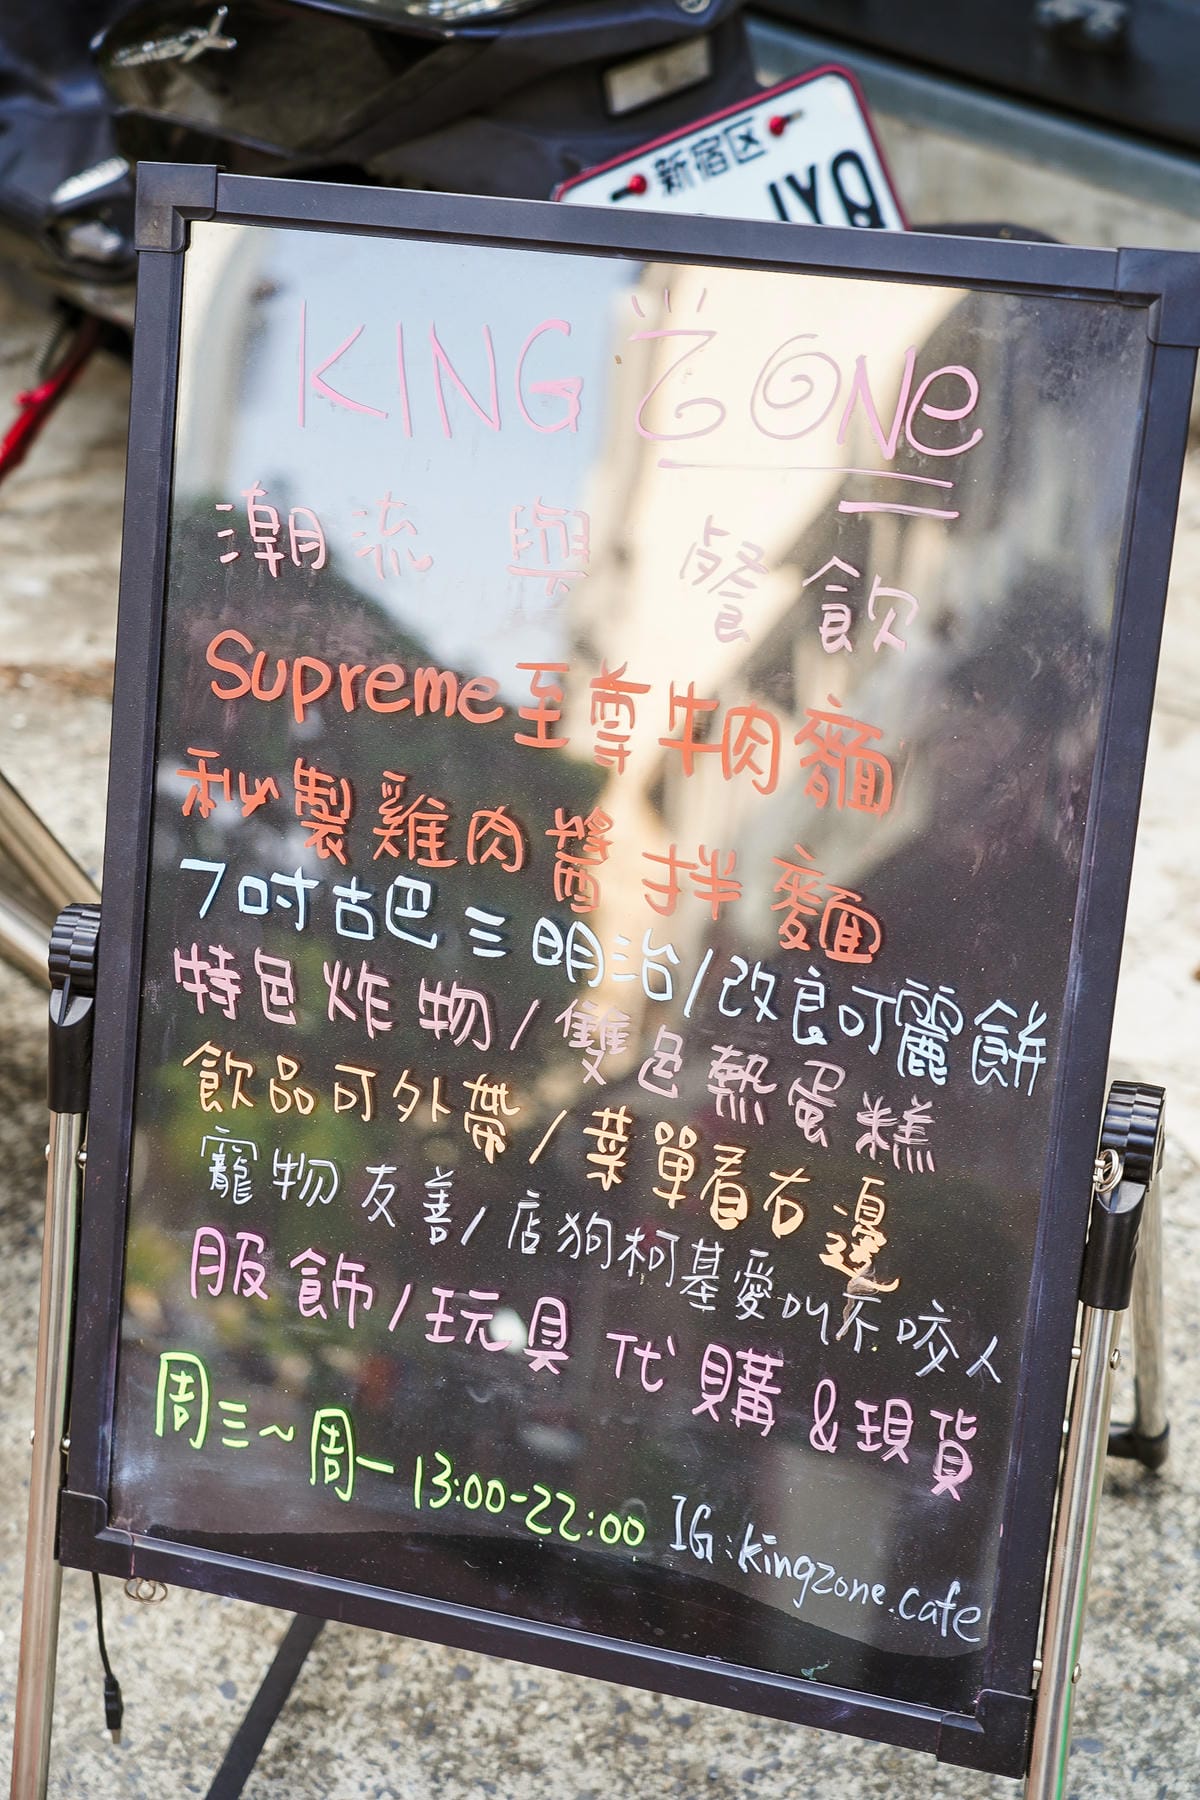 新宿区
KING ZONe
潮流 與 餐飲
Supreme至尊牛肉麵
秘製雞肉醬拌麵
7吋古巴三明治/改良可麗餅
特色炸物/雙色熱蛋糕
飲品可外帶/菜單看右邊
寵物友善/店狗柯基愛叫不咬人
服飾/玩具代購&現貨
周三~周一 13:00-22:00
IG:kingzone.cafe